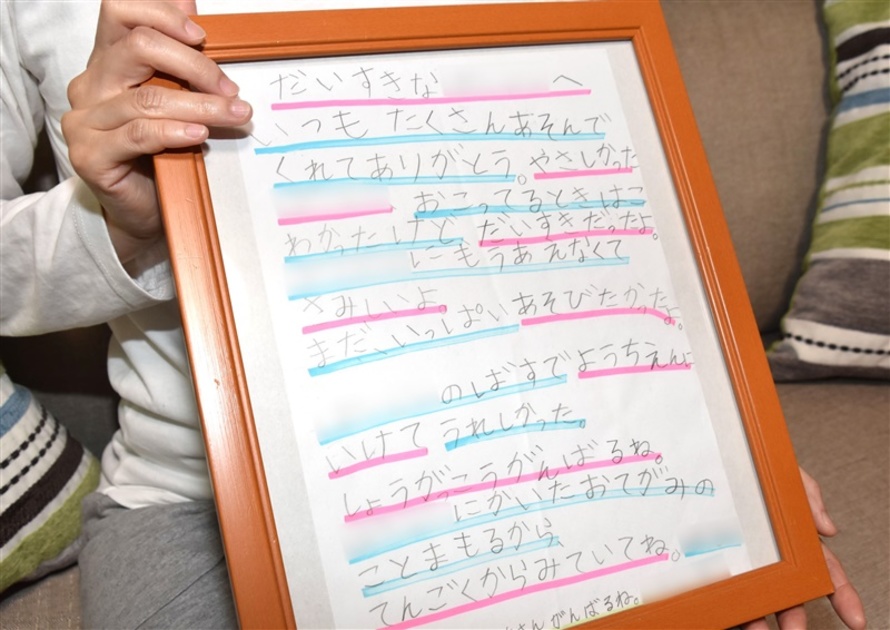 だいすきな へ
いつも たくさんあそんで
くれてありがとう。やさしかった
、おこってるときはこ
わかったけど だいすきだったよ。
にもうあえなくて
さみしいよ。
まだ、いっぱいあそびたかったよ。
のばすで ようちえんに
いけて うれしかった。
しょうがっこうがんばるね。
にかいたおてがみの
ことまもるから、
てんごくからみていてね。
さんがんばるね。